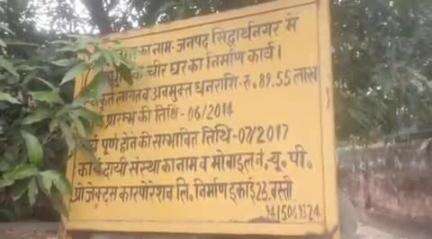 का नाम- जनपद सिद्धार्थनगर में
चीर घर का निर्माण कार्य।
लागत व अवमुक्त धनराशि- रु. 89.55 लाख
प्रारम्भ की तिथि- 06/2014
पूर्ण होने की सम्भावित तिथि-07/2017
कार्यदायी संस्था का नाम व मोबाइल नं. यू. पी.
प्रोजेक्ट्स कारपोरेशन लि. निर्माण इकाई 26, बस्ती